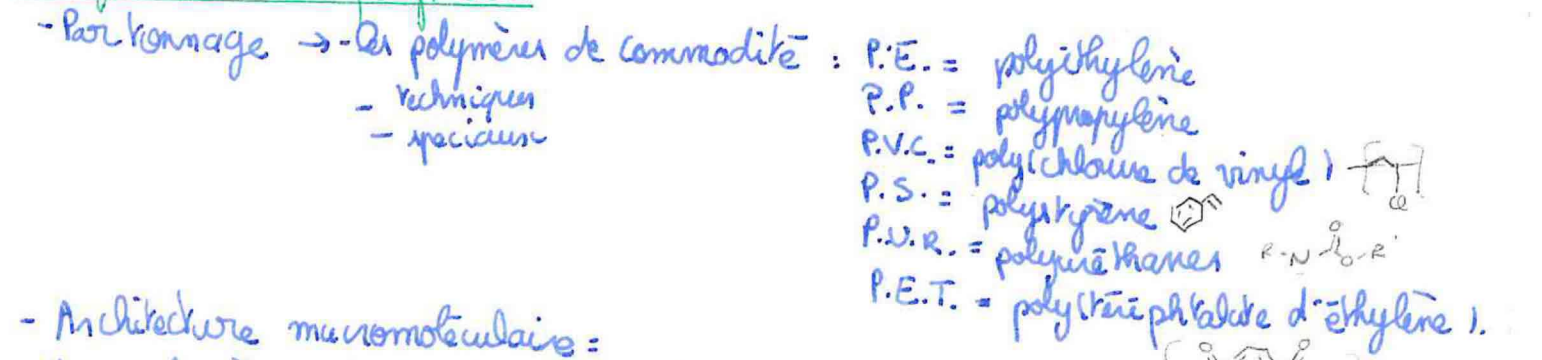 - Par tonnage → - Les polymères de commodité : P.E. = polyéthylène
- techniques
- speciaux
P.P. = polypropylène
P.V.C. = poly(chlorure de vinyl)
Cl
P.S. = polystyrène
P.U.R. = polyuréthanes R-N O O-R'
P.E.T. = poly(téréphtalate d'éthylène).
- Architecture macromoléculaire =